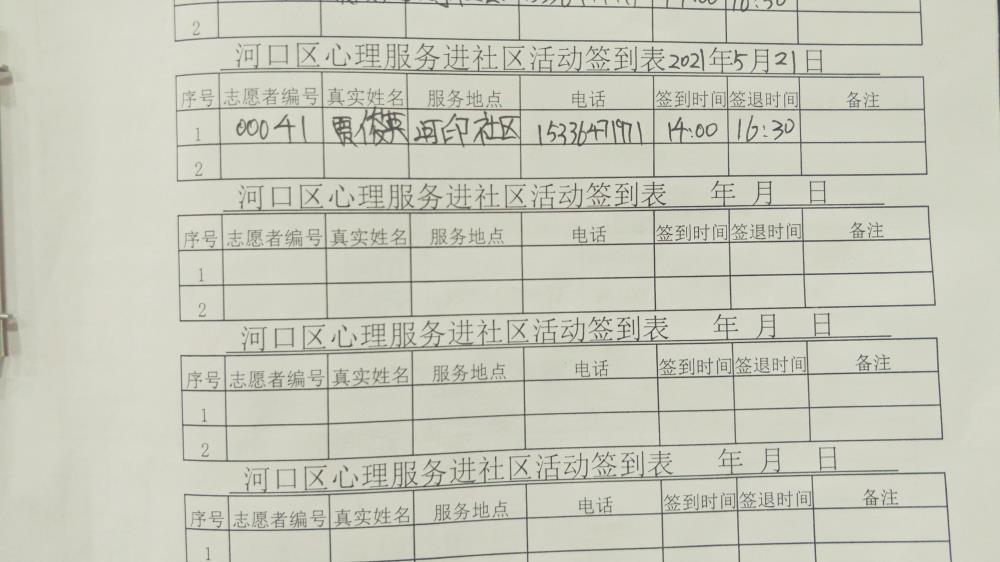 14:00 16:30
2
河口区心理服务进社区活动签到表2021年5月21日
序号 志愿者编号 真实姓名 服务地点 电话 签到时间 签退时间 备注
1 00041 贾俊英 河印社区 15336471971 14:00 16:30
2
河口区心理服务进社区活动签到表 年 月 日
序号 志愿者编号 真实姓名 服务地点 电话 签到时间 签退时间 备注
1
2
河口区心理服务进社区活动签到表 年 月 日
序号 志愿者编号 真实姓名 服务地点 电话 签到时间 签退时间 备注
1
2
河口区心理服务进社区活动签到表 年 月 日
序号 志愿者编号 真实姓名 服务地点 电话 签到时间 签退时间 备注
1